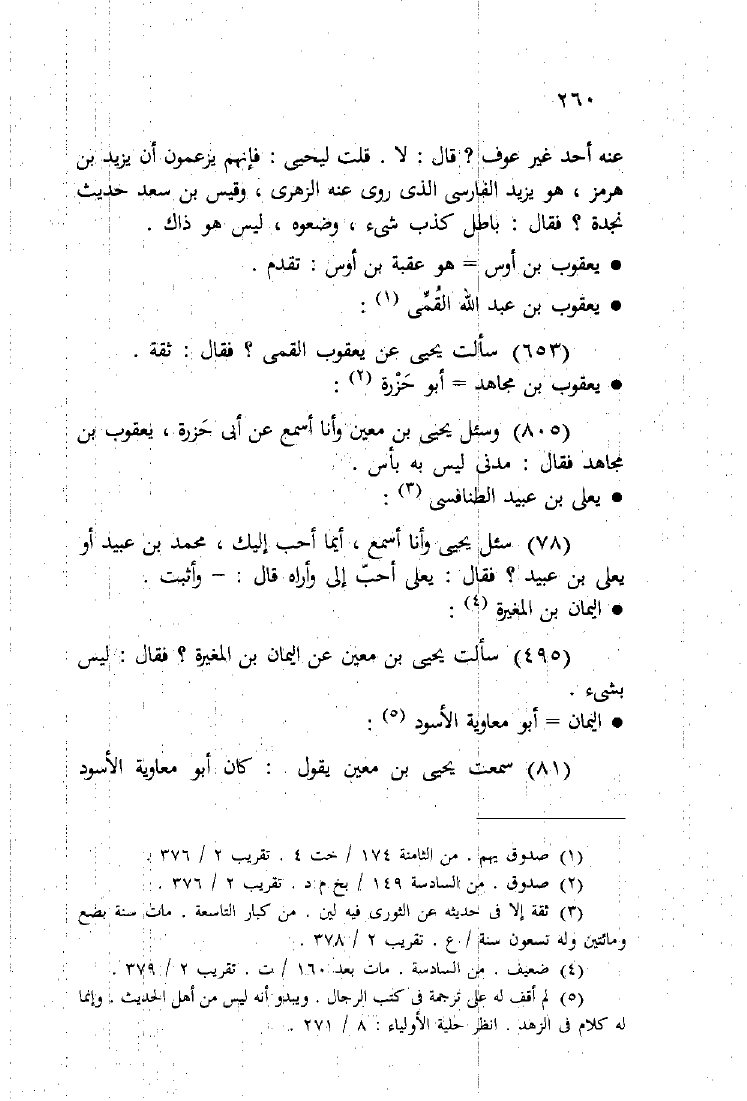 ٢٦٠
عنه أحد غير عوف ؟ قال : لا . قلت ليحيى : فإنهم يزعمون أن يزيد بن
هرمز ، هو يزيد الفارسى الذى روى عنه الزهرى ، وقيس بن سعد حديث
نجدة ؟ فقال : باطل كذب شىء ، وضعوه ، ليس هو ذاك .
● يعقوب بن أوس = هو عقبة بن أوس : تقدم .
● يعقوب بن عبد الله القُمِّى (١) :
(٦٥٣) سألت يحيى عن يعقوب القمى ؟ فقال : ثقة .
● يعقوب بن مجاهد = أبو حَزْرة (٢) :
(٨٠٥) وسئل يحيى بن معين وأنا أسمع عن أبى حَزرة ، يعقوب بن
مجاهد فقال : مدنى ليس به بأس .
● يعلى بن عبيد الطنافسى (٣) :
(٧٨) سئل يحيى وأنا أسمع ، أيما أحب إليك ، محمد بن عبيد أو
يعلى بن عبيد ؟ فقال : يعلى أحبّ إلى وأراه قال : – وأثبت .
● اليمان بن المغيرة (٤) :
(٤٩٥) سألت يحيى بن معين عن اليمان بن المغيرة ؟ فقال : ليس
بشىء .
● اليمان = أبو معاوية الأسود (٥) :
(٨١) سمعت يحيى بن معين يقول : كان أبو معاوية الأسود
(١) صدوق يهم . من الثامنة ١٧٤ / خت ٤ . تقريب ٢ / ٣٧٦ .
(٢) صدوق . من السادسة ١٤٩ / بخ م د . تقريب ٢ / ٣٧٦ .
(٣) ثقة إلا فى حديثه عن الثورى فيه لين . من كبار التاسعة . مات سنة بضع
ومائتين وله تسعون سنة / ع . تقريب ٢ / ٣٧٨ .
(٤) ضعيف . من السادسة . مات بعد ١٦٠ / ت . تقريب ٢ / ٣٧٩ .
(٥) لم أقف له على ترجمة فى كتب الرجال . ويبدو أنه ليس من أهل الحديث . وإنما
له كلام فى الزهد . انظر حلية الأولياء : ٨ / ٢٧١ .